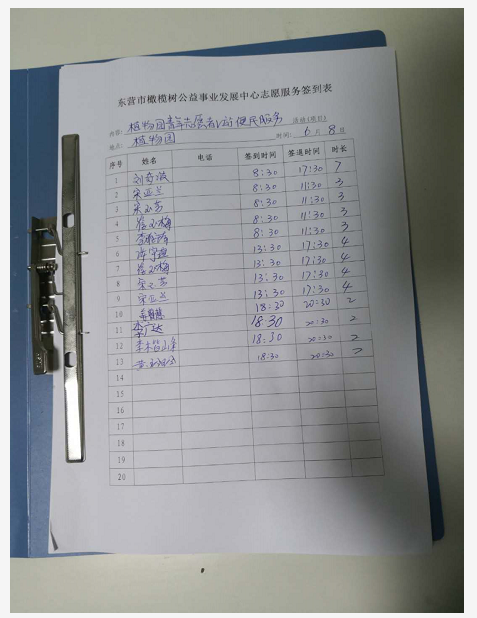 东营市橄榄树公益事业发展中心志愿服务签到表
内容: 植物园青年志愿者V站便民服务 活动(项目)
地点: 植物园 时间: 6 月 8 日
序号 姓名 电话 签到时间 签退时间 时长
1 8:30 17:30 7
2 宋亚兰 8:30 11:30 3
3 8:30 11:30 3
4 8:30 11:30 3
5 8:30 11:30 3
6 13:30 17:30 4
7 13:30 17:30 4
8 13:30 17:30 4
9 宋亚兰 13:30 17:30 4
10 18:30 20:30 2
11 李广达 18:30 20:30 2
12 18:30 20:30 2
13 18:30 20:30 2
14
15
16
17
18
19
20